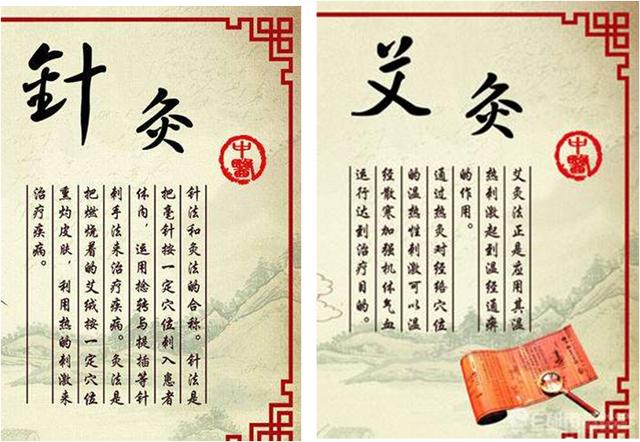 針灸
中醫
针法和灸法的合称。针法是
把毫针按一定穴位刺入患者
体内，运用捻转与提插等针
刺手法来治疗疾病。灸法是
把燃烧着的艾绒按一定穴位
熏灼皮肤，利用热的刺激来
治疗疾病。
艾灸
中醫
艾灸法正是应用其温
热刺激起到温经通痹
的作用。
通过热灸对经络穴位
的温热性刺激可以温
经散寒加强机体气血
运行达到治疗目的。